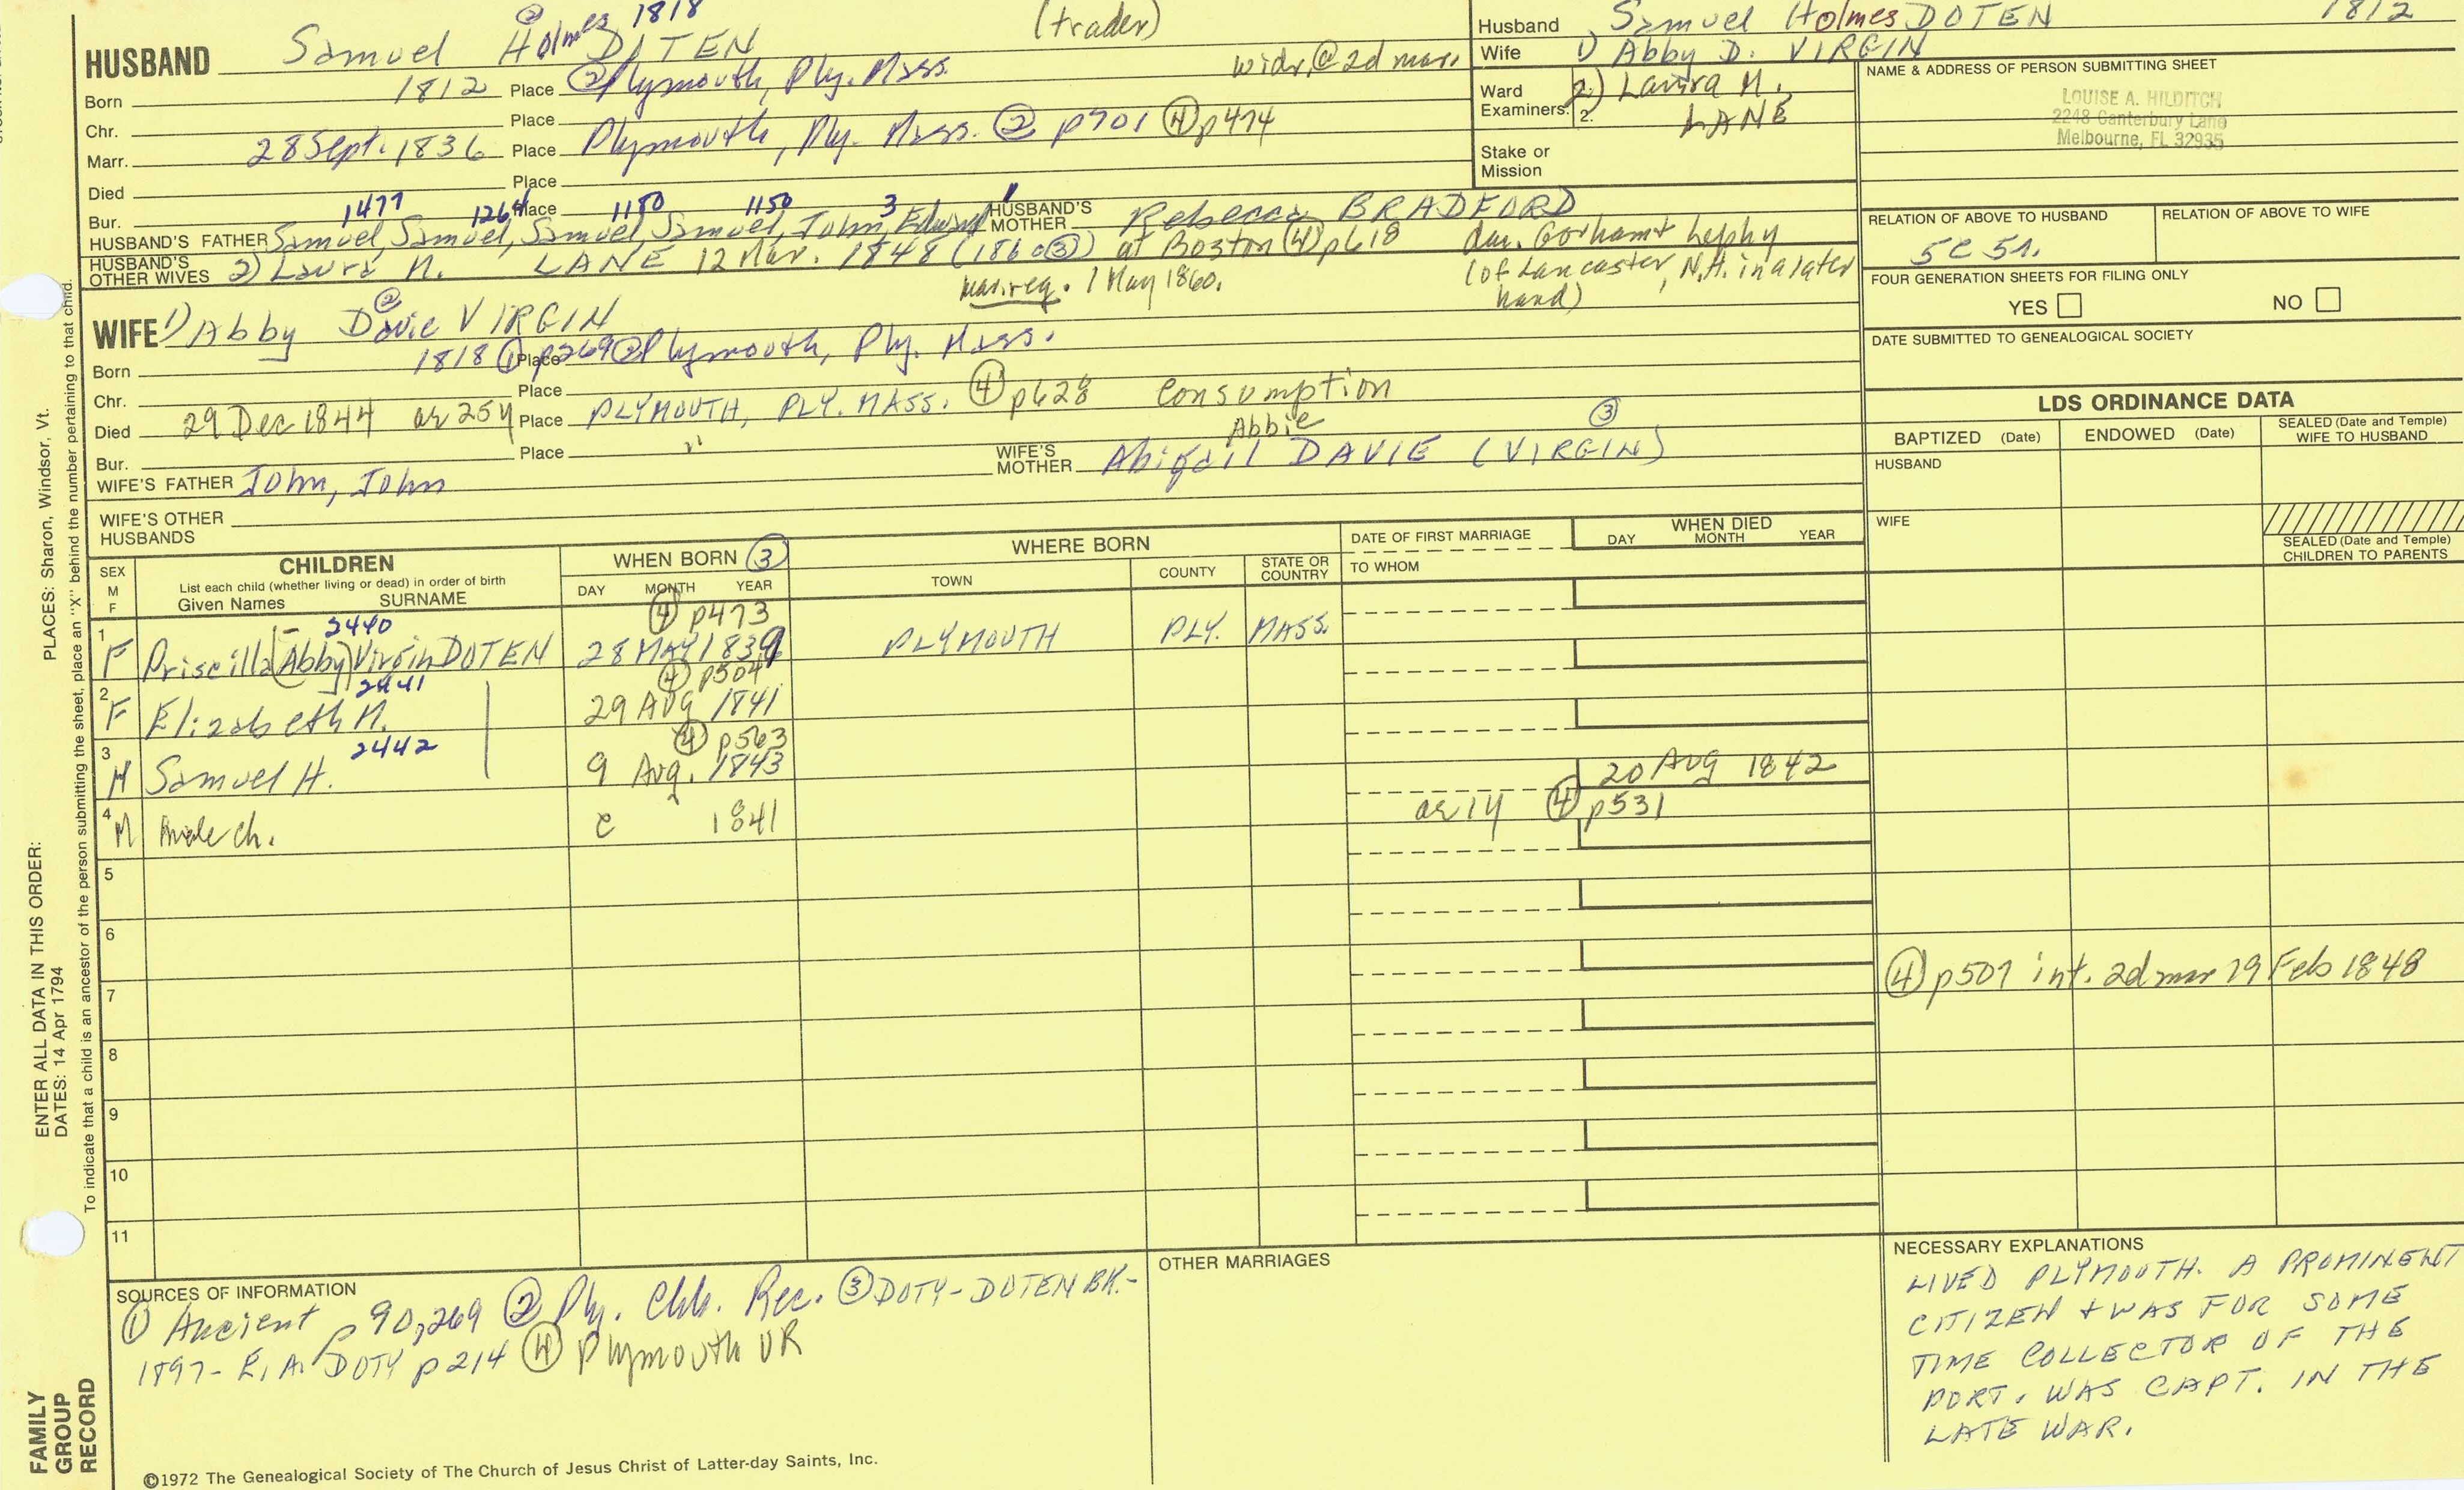 ② 1818 (trader)
HUSBAND Samuel Holmes DOTEN
widr. @ 2d mar.
Born 1812 Place ② Plymouth, Ply. Mass.
Chr. Place
Marr. 28 Sept. 1836 Place Plymouth, Ply. Mass. ② p701 ④ p474
Died Place
Bur. Place
1477 1264 1150 1150 3 1
HUSBAND'S FATHER Samuel, Samuel, Samuel, Samuel, John, Edward HUSBAND'S MOTHER Rebecca BRADFORD
HUSBAND'S OTHER WIVES 2) Laura N. LANE 12 Mar. 1848 (1860 ③) at Boston ④ p618 dau. Gorham + Lephy
mar. reg. 1 May 1860. (of Lancaster, N.H. in a later hand)
Husband Samuel Holmes DOTEN 1812
Wife 1) Abby D. VIRGIN
Ward 2) Laura N.
Examiners: 2. LANE
Stake or Mission
NAME & ADDRESS OF PERSON SUBMITTING SHEET
LOUISE A. HILDITCH
2248 Canterbury Lane
Melbourne, FL 32935
RELATION OF ABOVE TO HUSBAND RELATION OF ABOVE TO WIFE
5c 5r.
FOUR GENERATION SHEETS FOR FILING ONLY
YES NO
DATE SUBMITTED TO GENEALOGICAL SOCIETY
②
WIFE 1) Abby Davie VIRGIN
Born 1818 ① p269 Place ② Plymouth, Ply. Mass.
Chr. Place
Died 29 Dec 1844 ae 25y Place PLYMOUTH, PLY. MASS. ④ p628 Consumption
Bur. Place "
Abbie ③
WIFE'S FATHER John, John WIFE'S MOTHER Abigail DAVIE (VIRGIN)
WIFE'S OTHER HUSBANDS
LDS ORDINANCE DATA
BAPTIZED (Date) ENDOWED (Date) SEALED (Date and Temple) WIFE TO HUSBAND
HUSBAND
WIFE
SEALED (Date and Temple) CHILDREN TO PARENTS
SEX M F
CHILDREN
List each child (whether living or dead) in order of birth
Given Names SURNAME
WHEN BORN ③
DAY MONTH YEAR
WHERE BORN
TOWN COUNTY STATE OR COUNTRY
DATE OF FIRST MARRIAGE
TO WHOM
WHEN DIED
DAY MONTH YEAR
2440 ④ p473
1 F Priscilla (Abby) Virgin DOTEN 28 MAY 1839 PLYMOUTH PLY. MASS.
2441 ④ p504
2 F Elizabeth N. 29 AUG 1841
2442 ④ p563
3 M Samuel H. 9 Aug. 1843
20 AUG 1842
4 M male ch. c 1841 ae 1y ④ p531
5
6
④ p507 int. 2d mar 19 Feb 1848
7
8
9
10
11
SOURCES OF INFORMATION
① Ancient p 90,269 ② Ply. Chh. Rec. ③ DOTY-DOTEN BK.-
1897- E.A. DOTY p 214 ④ Plymouth VR
OTHER MARRIAGES
NECESSARY EXPLANATIONS
LIVED PLYMOUTH. A PROMINENT
CITIZEN + WAS FOR SOME
TIME COLLECTOR OF THE
PORT. WAS CAPT. IN THE
LATE WAR.
©1972 The Genealogical Society of The Church of Jesus Christ of Latter-day Saints, Inc.
FAMILY GROUP RECORD
ENTER ALL DATA IN THIS ORDER:
DATES: 14 Apr 1794
PLACES: Sharon, Windsor, Vt.
To indicate that a child is an ancestor of the person submitting the sheet, place an "X" behind the number pertaining to that child.